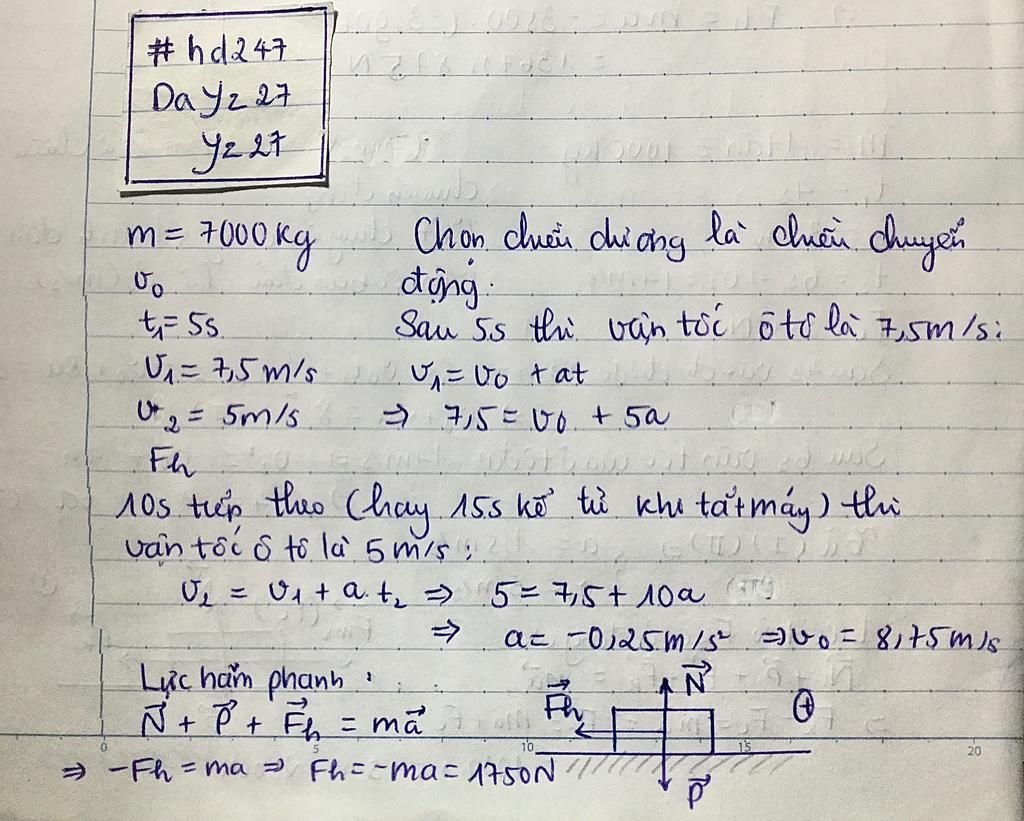 #hd247
Dayz27
yz27
m = 7000kg
Chọn chiều dương là chiều chuyển
động.
v₀
t₁= 5s
Sau 5s thì vận tốc ô tô là 7,5m/s:
v₁ = 7,5 m/s
v₁ = v₀ + at
v₂ = 5m/s
⇒ 7,5 = v₀ + 5a
Fh
10s tiếp theo (hay 15s kể từ khi tắt máy) thì
vận tốc ô tô là 5 m/s:
v₂ = v₁ + a.t₂ ⇒ 5 = 7,5 + 10a
⇒ a = -0,25m/s² ⇒ v₀ = 8,75 m/s
Lực hãm phanh:
N⃗ + P⃗ + F⃗h = ma⃗
⇒ -Fh = ma ⇒ Fh = -ma = 1750N
N⃗
F⃗h
+
P⃗
0 5 10 15 20